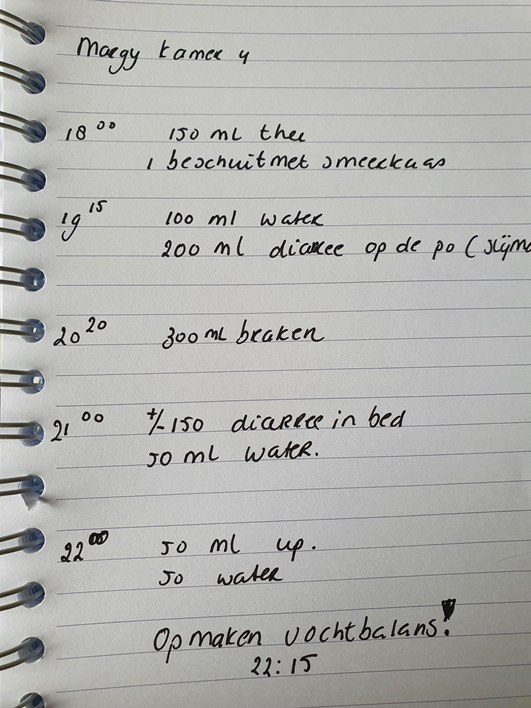 Maegy kamer 4
18 00 150 ml thee
1 beschuit met smeerkaas
19 15 100 ml water
200 ml diarree op de po (slijm
20 20 300 ml braken
21 00 +/- 150 diarree in bed
50 ml water.
22 00 50 ml up.
50 water
Opmaken vochtbalans!
22:15